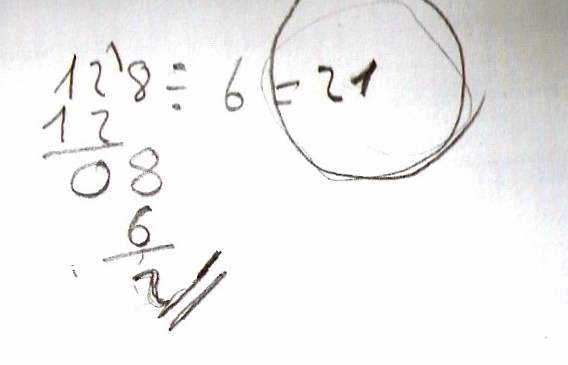 12'8÷6=21
12
08
6
2//